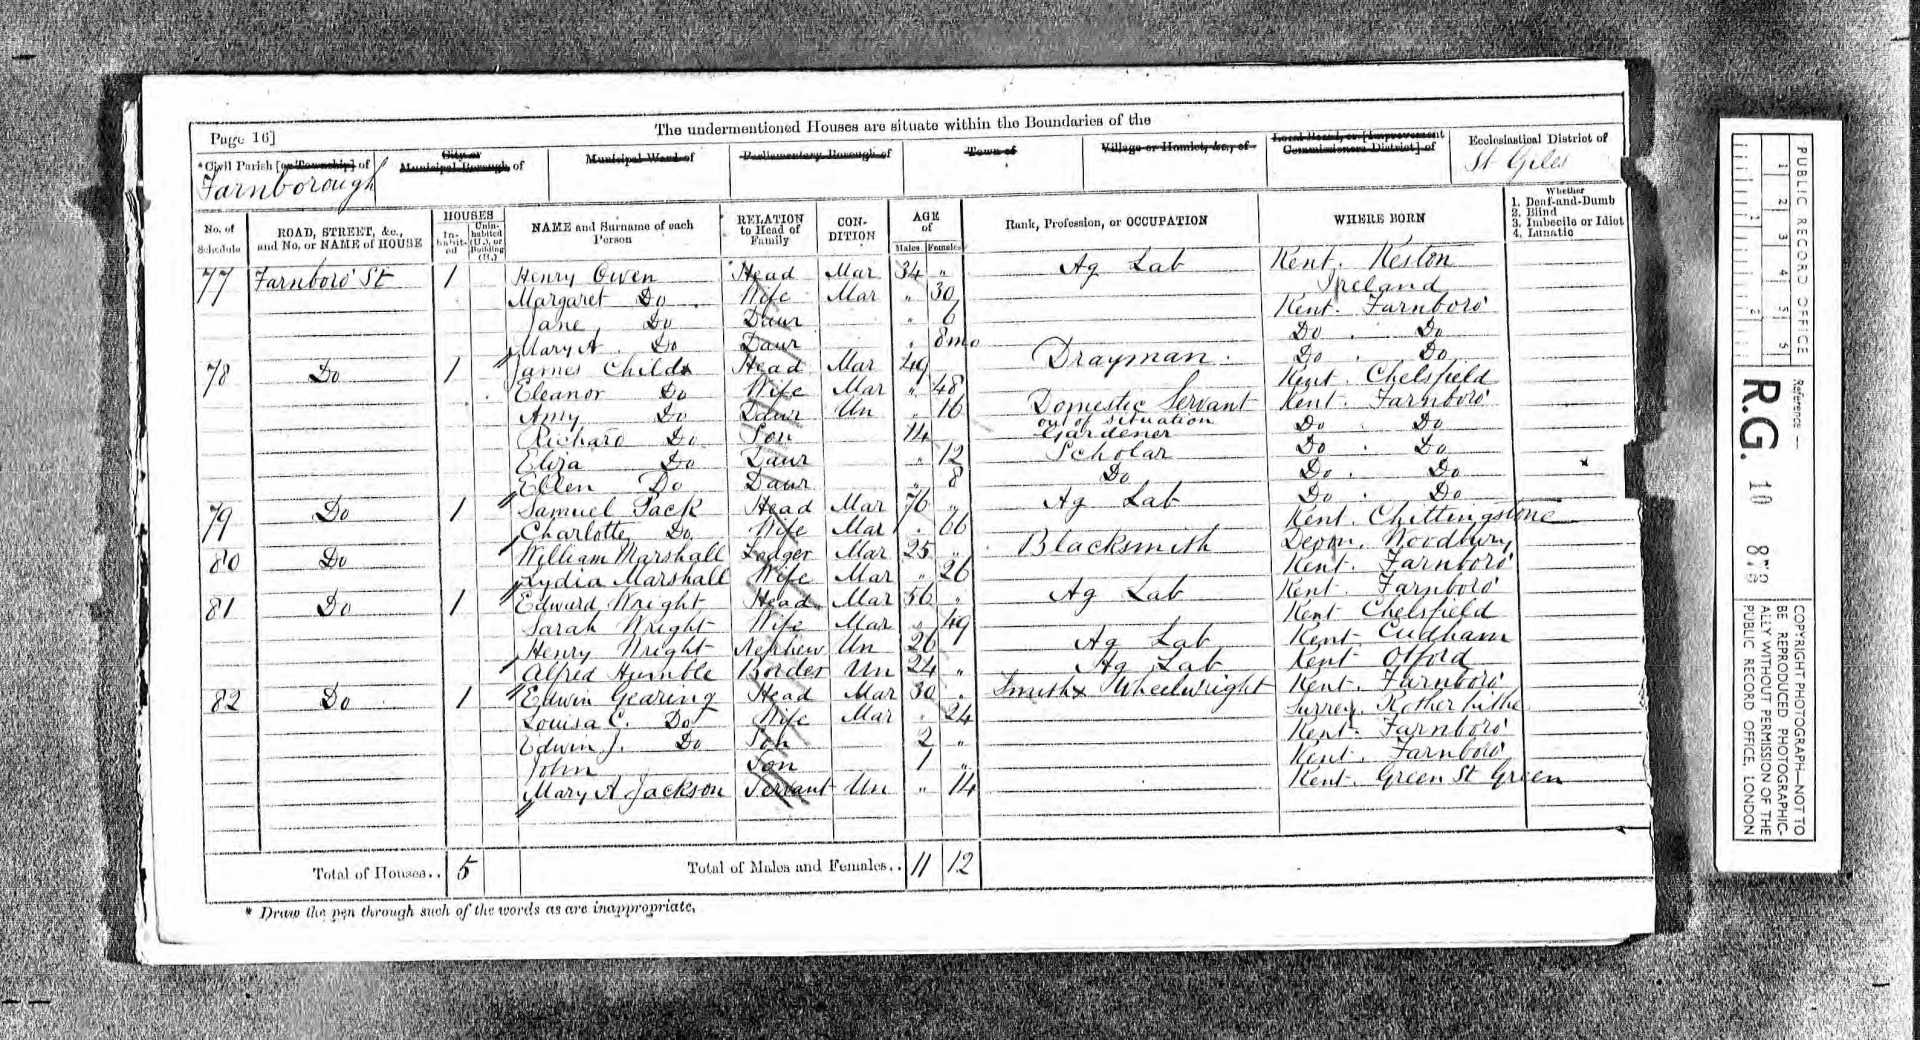 Page 16]
The undermentioned Houses are situate within the Boundaries of the
*Civil Parish [or Township] of
Farnborough
City or Municipal Borough of
Municipal Ward of
Parliamentary Borough of
Town of
Village or Hamlet, &c., of
Local Board, or [Improvement Commissioners District] of
Ecclesiastical District of
St Giles
No. of Schedule
ROAD, STREET, &c., and No. or NAME of HOUSE
HOUSES
In-habit-ed
Unin-habited (U.), or Building (B.)
NAME and Surname of each Person
RELATION to Head of Family
CON-DITION
AGE of
Males
Females
Rank, Profession, or OCCUPATION
WHERE BORN
Whether
1. Deaf-and-Dumb
2. Blind
3. Imbecile or Idiot
4. Lunatic
77 Farnboro' St 1 Henry Owen Head Mar 34 " Ag Lab Kent. Keston
Margaret Do Wife Mar " 30 Ireland
Jane Do Daur " 6 Kent. Farnboro'
Mary A. Do Daur " 8mo Do . Do
78 Do 1 James Child Head Mar 49 Drayman. Do . Do
Eleanor Do Wife Mar " 48 Kent. Chelsfield
Amy Do Daur Un " 16 Domestic Servant out of situation Kent. Farnboro'
Richard Do Son 14 Gardener Do . Do
Eliza Do Daur " 12 Scholar Do . Do
Ellen Do Daur " 8 Do Do . Do
79 Do 1 Samuel Pack Head Mar 76 " Ag Lab Do . Do
Charlotte Do Wife Mar . 66 Kent. Chittingstone
80 Do William Marshall Lodger Mar 25 " Blacksmith Devon. Woodbury
Lydia Marshall Wife Mar " 26 Kent. Farnboro'
81 Do 1 Edward Wright Head Mar 56 " Ag Lab Kent. Farnboro'
Sarah Wright Wife Mar " 49 Kent Chelsfield
Henry Wright Nephew Un 26 Ag Lab Kent Cudham
Alfred Humble Border Un 24 " Ag Lab Kent Otford
82 Do 1 Edwin Gearing Head Mar 30 . Wheelwright Kent. Farnboro'
Louisa C. Do Wife Mar " 24 Surrey. Rotherhithe
Edwin J. Do Son 2 " Kent. Farnboro'
John Son 1 " Kent. Farnboro'
Mary A Jackson Servant Un " 14 Kent. Green St Green
Total of Houses.. 5
Total of Males and Females.. 11 12
* Draw the pen through such of the words as are inappropriate.
PUBLIC RECORD OFFICE
1 2 3 4 5
1 2
Reference —
R.G. 10
COPYRIGHT PHOTOGRAPH—NOT TO
BE REPRODUCED PHOTOGRAPHIC-
ALLY WITHOUT PERMISSION OF THE
PUBLIC RECORD OFFICE, LONDON